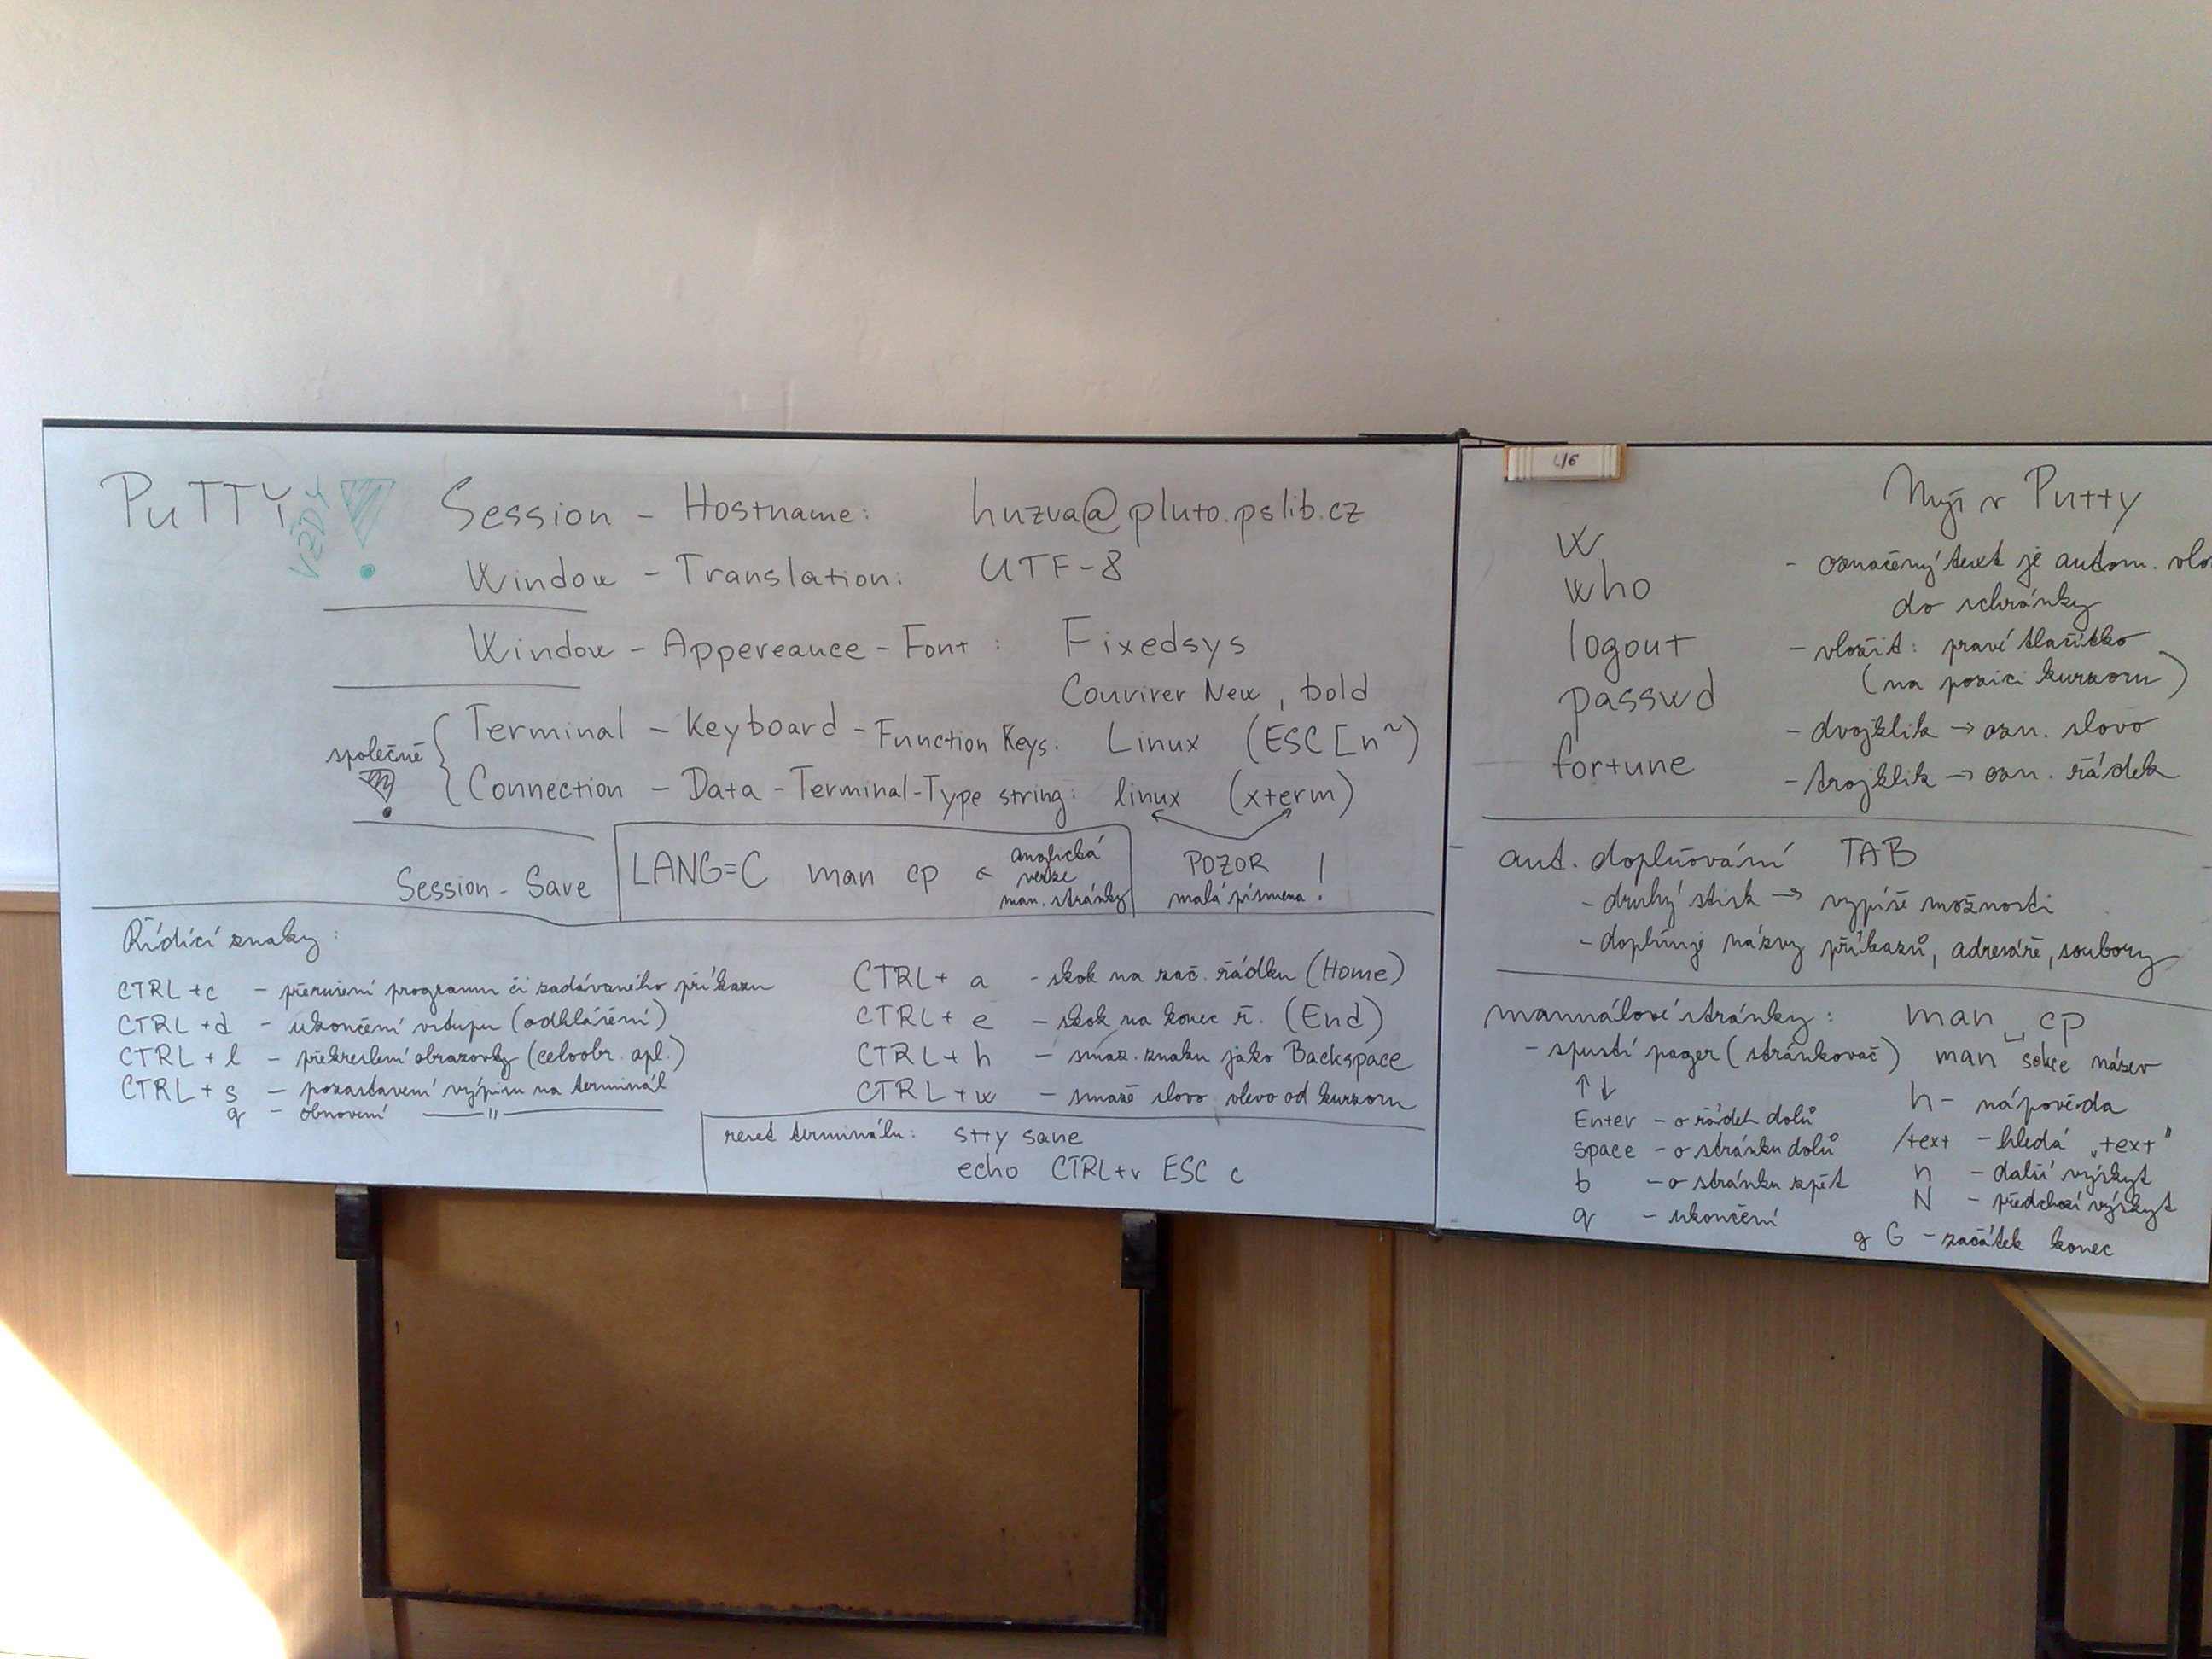 PuTTY VŽDY !
Session - Hostname: huzva@pluto.pslib.cz
Window - Translation: UTF-8
Window - Appereance - Font : Fixedsys
Couvirer New, bold
společně !
Terminal - Keyboard - Function Keys: Linux (ESC[n~)
Connection - Data - Terminal-Type string: linux (xterm)
POZOR
malá písmena !
Session - Save
LANG=C man cp ← anglická
verze
man. stránky
Řídící znaky:
CTRL+c - přerušení programu či zadávaného příkazu
CTRL+d - ukončení vstupu (odhlášení)
CTRL+l - překreslení obrazovky (celoobr. apl.)
CTRL+s - pozastavení výpisu na terminál
q - obnovení —"—
CTRL+a - skok na zač. řádku (Home)
CTRL+e - skok na konec ř. (End)
CTRL+h - smaz. znaku jako Backspace
CTRL+w - smaže slovo vlevo od kurzoru
reset terminálu: stty sane
echo CTRL+v ESC c
4/6
w
who
logout
passwd
fortune
Myš v Putty
- označený text je autom. vlo
do schránky
- vložit: pravé tlačítko
(na pozici kurzoru)
- dvojklik → ozn. slovo
- trojklik → ozn. řádek
aut. doplňování TAB
- druhý stisk → vypíše možnosti
- doplňuje názvy příkazů, adresáře, soubory
manuálové stránky: man ␣ cp
- spustí pager (stránkovač) man sekce název
↑↓
Enter - o řádek dolů
space - o stránku dolů
b - o stránku zpět
q - ukončení
h - nápověda
/text - hledá „text"
n - další výskyt
N - předchozí výskyt
g G - začátek konec